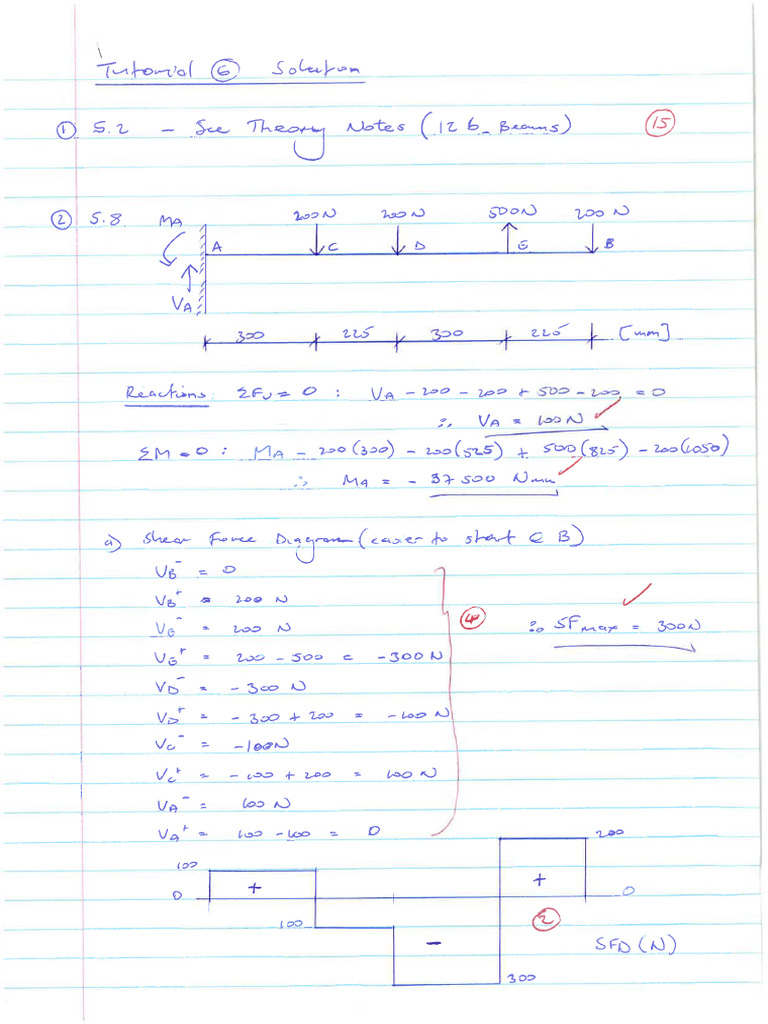 Tutorial ⑥ Solution
① 5.2 - See Theory Notes (12 b_Beams) ⑮
② 5.8. MA 200N 200N 500N 200N
A C D E B
VA
300 225 300 225 [mm]
Reactions: ΣFv = 0 : VA - 200 - 200 + 500 - 200 = 0
∴ VA = 100N ✓
ΣM = 0 : MA - 200(300) - 200(525) + 500(825) - 200(1050)
∴ MA = - 37 500 Nmm ✓
a) Shear Force Diagram (easier to start @ B)
VB⁻ = 0
VB⁺ = 200 N
VE⁻ = 200 N ④ ∴ SFmax = 300N ✓
VE⁺ = 200 - 500 = - 300 N
VD⁻ = - 300 N
VD⁺ = - 300 + 200 = - 100 N
VC⁻ = - 100N
VC⁺ = - 100 + 200 = 100 N
VA⁻ = 100 N
VA⁺ = 100 - 100 = 0
200
100
+ +
0 0
100 ②
- SFD (N)
300